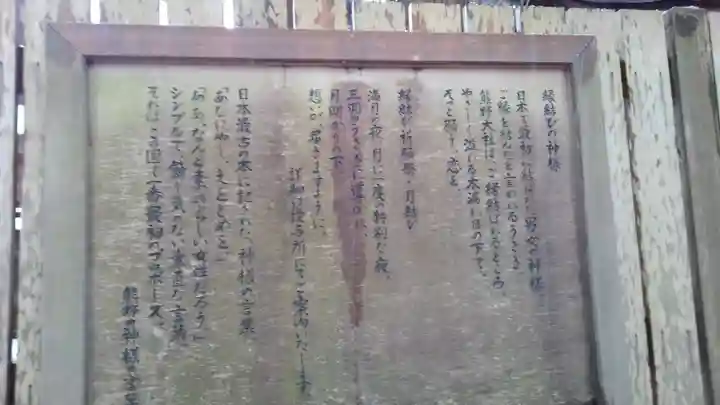 縁結びの神様
日本で最初に結ばれた男女の神様、
ご縁を結んだと言われるうさぎ
熊野大社は、ご縁結ばれるところ。
やさしく注がれる本満に月の下で、
そっと願う、恋を
縁結び祈願祭・月結び
満月の夜、月に一度の特別な夜。
三羽のうさぎに導かれ、
月明かりの下
想いが届きますように。
詳細は授与所にてご案内いたします
日本最古の本に記された、神様の言葉
「あなにやし、えをとめを」
「ああ、なんと素晴らしい女性だろう」
シンプルで、飾り気のない素直な言葉
それはこの国で一番最初のプロポーズ。
熊野の神様の言葉